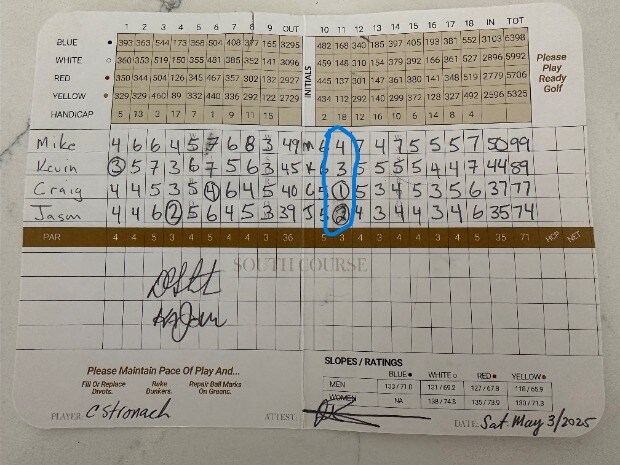 1 2 3 4 5 6 7 8 9 OUT INITIALS 10 11 12 13 14 15 16 17 18 IN TOT
BLUE 393 363 544 173 368 504 408 377 165 3295 482 168 340 185 397 405 193 381 552 3103 6398
WHITE 360 353 519 150 355 481 385 352 141 3096 459 148 327 2896 5992
RED 350 344 504 126 345 467 357 302 132 2927 445 137 301 147 361 380 141 348 519 2779 5706
YELLOW 329 329 460 89 332 440 336 292 122 2729 434 112 292 140 299 372 128 327 492 2596 5325
HANDICAP 5 13 3 17 7 1 9 11 15 2 18 12 14 10 6 16 8 4
Please Play Ready Golf
Mike 4 6 6 4 5 7 6 8 3 49 M 6 4 7 4 7 5 5 5 7 50 99
Kevin 3 5 7 3 6 7 5 6 3 45 K 6 3 5 5 5 5 4 4 7 44 89
Craig 4 4 5 3 5 4 6 4 5 40 C 5 1 5 3 4 5 3 5 6 37 77
Jason 4 4 6 2 5 6 4 5 3 39 J 5 2 4 3 4 4 3 4 6 35 74
PAR 4 4 5 3 4 5 4 4 3 36 5 3 4 3 4 4 3 4 5 35 71 HCP NET
SOUTH COURSE
Please Maintain Pace Of Play And...
Fill Or Replace Divots.
Rake Bunkers.
Repair Ball Marks On Greens.
SLOPES / RATINGS
BLUE WHITE RED YELLOW
MEN 133/71.0 131/69.2 127/67.8 118/65.9
WOMEN NA 138/74.5 135/73.0 130/71.3
PLAYER: C Stronach
ATTEST:
DATE: Sat May 3/2025